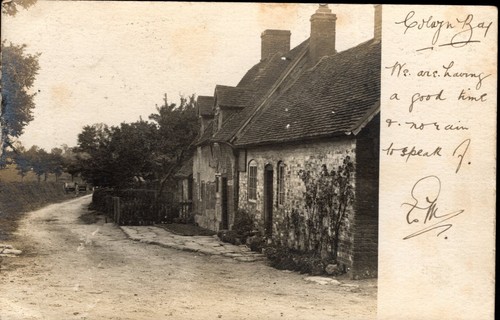 Colwyn Bay
We are having
a good time
& no rain
to speak of.